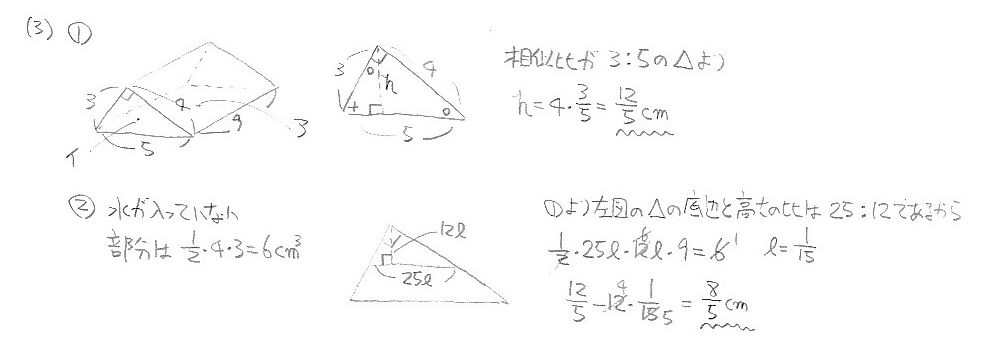 (3) ①
3
4
5
9
3
3
4
h
5
相似比が3:5の△より
h=4・3/5=12/5cm
② 水が入っていない
部分は1/2・4・3=6cm³
12ℓ
25ℓ
①より左図の△の底辺と高さの比は25:12であるから
1/2・25ℓ・12ℓ・9=6 ℓ=1/15
12/5-12・1/15=8/5cm